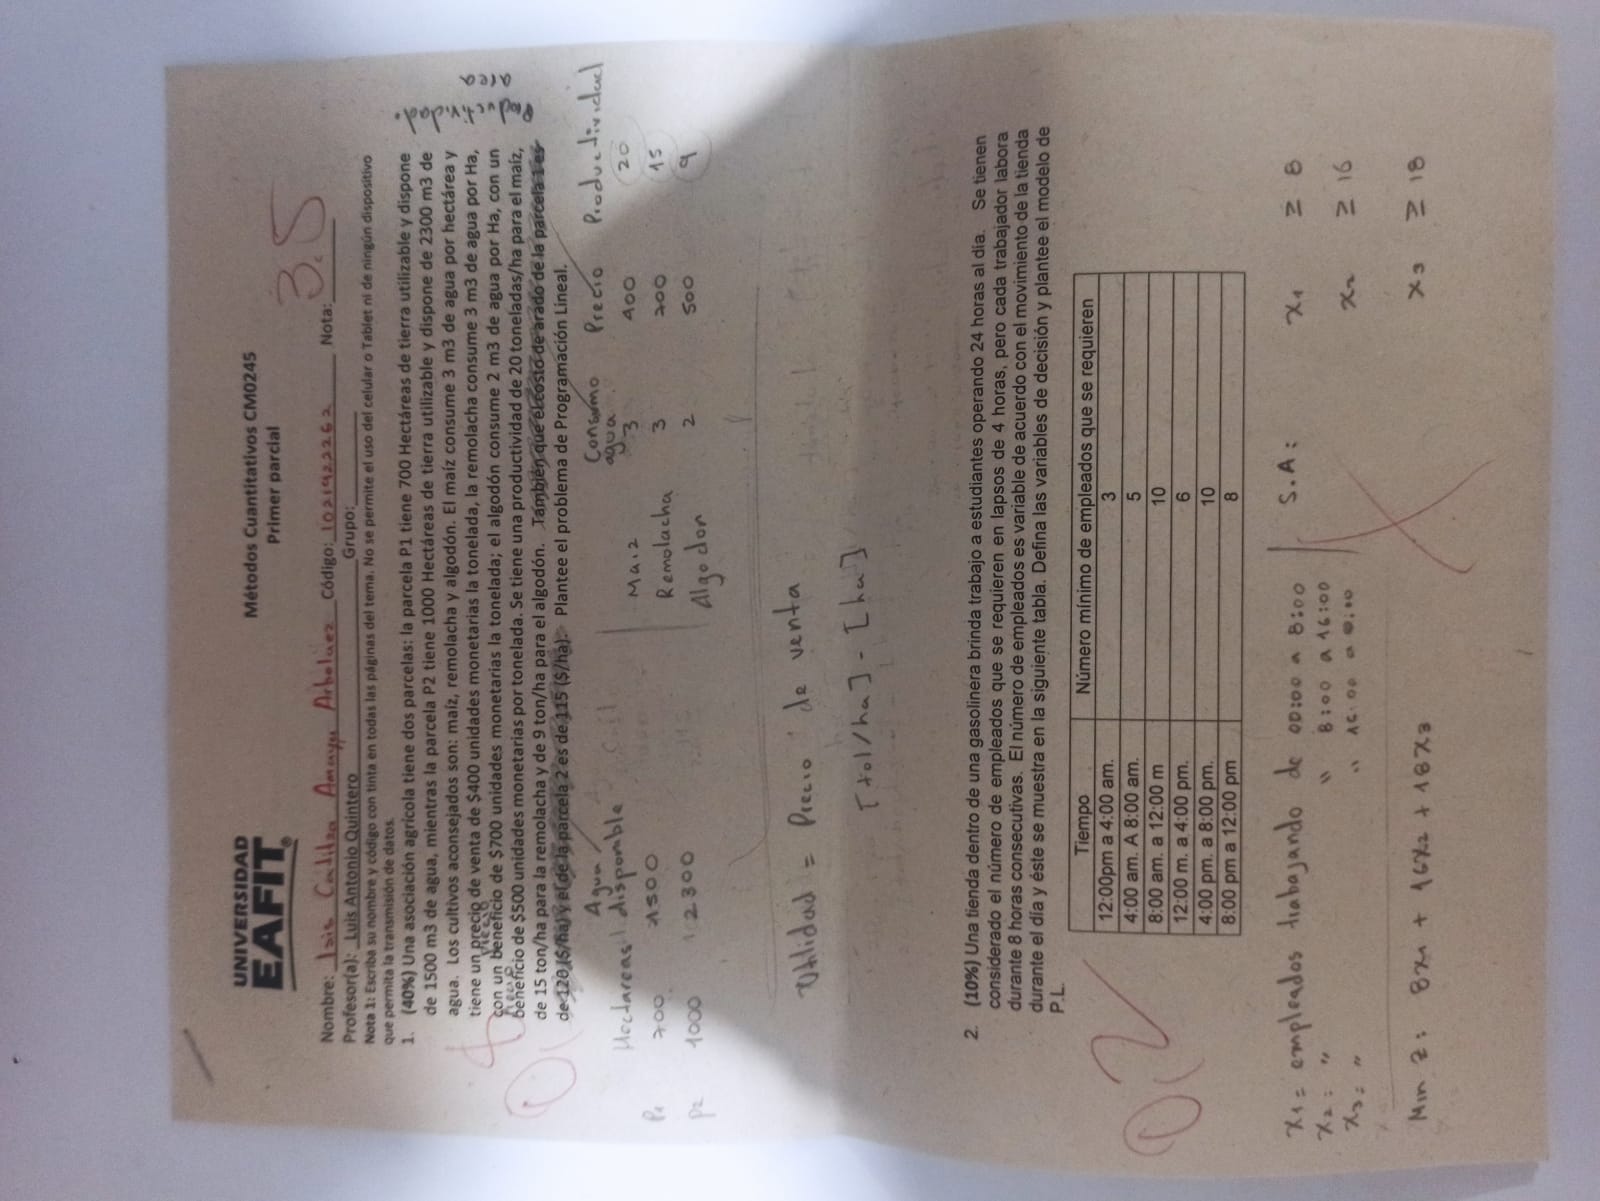 UNIVERSIDAD
EAFIT
Métodos Cuantitativos CM0245
Primer parcial
3.5
Nombre: Isis Amaya Arbelaez Código: 1021922262 Nota:
Profesor(a): Luis Antonio Quintero Grupo:
Nota 1: Escriba su nombre y código con tinta en todas las páginas del tema. No se permite el uso del celular o Tablet ni de ningún dispositivo
que permita la transmisión de datos.
1. (40%) Una asociación agrícola tiene dos parcelas: la parcela P1 tiene 700 Hectáreas de tierra utilizable y dispone
de 1500 m3 de agua, mientras la parcela P2 tiene 1000 Hectáreas de tierra utilizable y dispone de 2300 m3 de
agua. Los cultivos aconsejados son: maíz, remolacha y algodón. El maíz consume 3 m3 de agua por hectárea y
tiene un precio de venta de $400 unidades monetarias la tonelada, la remolacha consume 3 m3 de agua por Ha,
precio
con un beneficio de $700 unidades monetarias la tonelada; el algodón consume 2 m3 de agua por Ha, con un
beneficio de $500 unidades monetarias por tonelada. Se tiene una productividad de 20 toneladas/ha para el maíz,
de 15 ton/ha para la remolacha y de 9 ton/ha para el algodón. También que el costo de arado de la parcela 1 es
de 120 ($/ha) y el de la parcela 2 es de 115 ($/ha). Plantee el problema de Programación Lineal.
Productividad.
area
Hectareas Agua disponible
P1 700 1500
P2 1000 2300
Consumo agua Precio Productividad
Maiz 3 400 20
Remolacha 3 700 15
Algodon 2 500 9
Utilidad = Precio de venta
[tol/ha] - [ha]
2. (10%) Una tienda dentro de una gasolinera brinda trabajo a estudiantes operando 24 horas al día. Se tienen
considerado el número de empleados que se requieren en lapsos de 4 horas, pero cada trabajador labora
durante 8 horas consecutivas. El número de empleados es variable de acuerdo con el movimiento de la tienda
durante el día y éste se muestra en la siguiente tabla. Defina las variables de decisión y plantee el modelo de
P.L.
0,2
Tiempo Número mínimo de empleados que se requieren
12:00pm a 4:00 am. 3
4:00 am. A 8:00 am. 5
8:00 am. a 12:00 m 10
12:00 m. a 4:00 pm. 6
4:00 pm. a 8:00 pm. 10
8:00 pm a 12:00 pm 8
x1 = empleados trabajando de 00:00 a 8:00
x2 = " " 8:00 a 16:00
x3 = " " 16:00 a 0:00
Min Z: 8x1 + 16x2 + 18x3
S.A: x1 ≥ 8
x2 ≥ 16
x3 ≥ 18